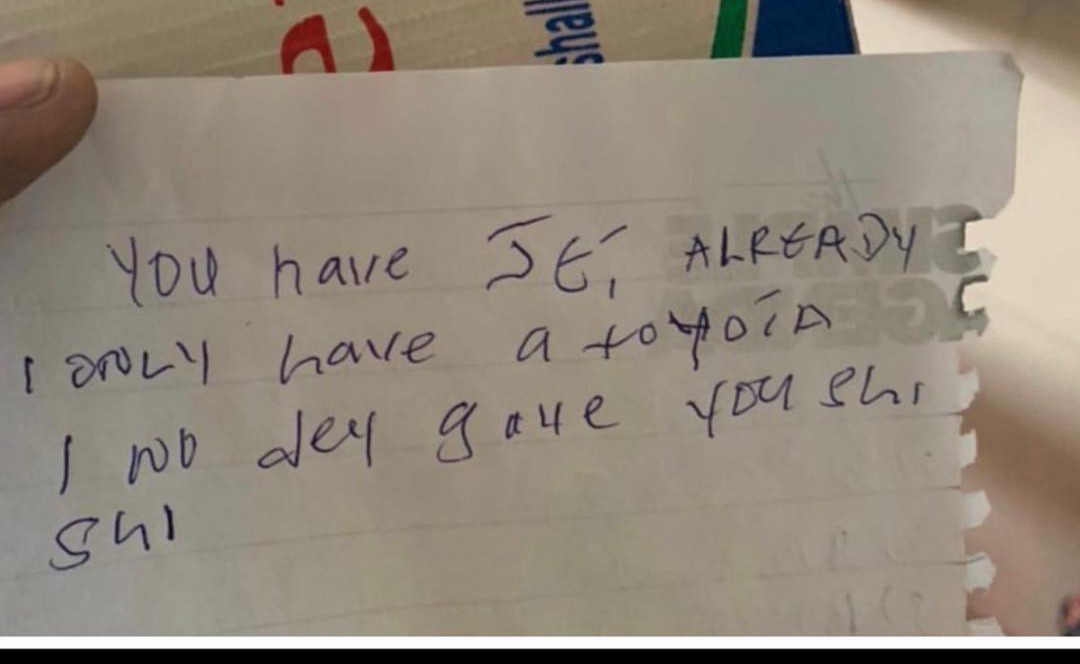 shall
YOU have JET ALREADY
I ONLY have a toyoTA
I NO dey gave YOU Shi
Shi